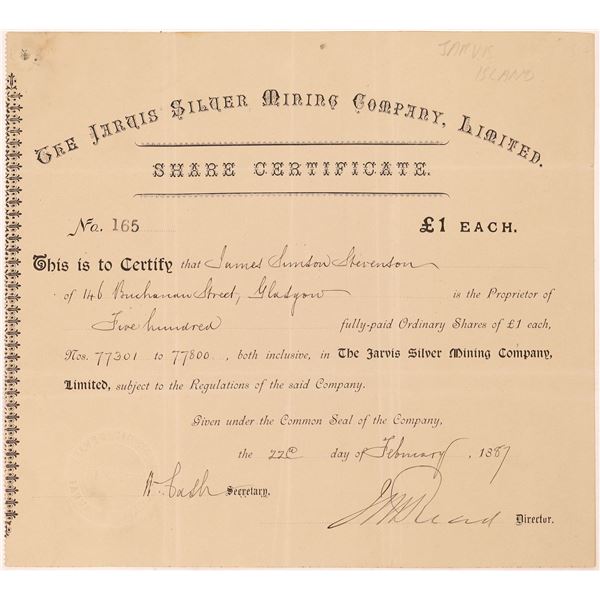 JARVIS
ISLAND
The Jarvis Silver Mining Company, Limited.
SHARE CERTIFICATE.
No. 165
£1 EACH.
This is to Certify that James Simson Stevenson
of 146 Buchanan Street, Glasgow is the Proprietor of
Five hundred fully-paid Ordinary Shares of £1 each,
Nos. 77301 to 77800, both inclusive, in The Jarvis Silver Mining Company,
Limited, subject to the Regulations of the said Company.
Given under the Common Seal of the Company,
the 22d day of February, 1887
W. Cash Secretary.
Director.